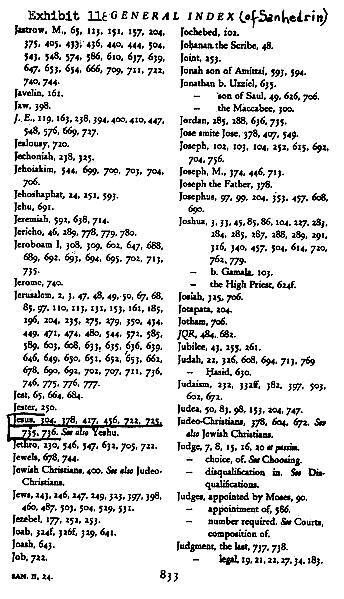 Exhibit 118 GENERAL INDEX (of Sanhedrin)
Jastrow, M., 65, 113, 151, 157, 204,
375, 405, 433, 436, 440, 444, 504,
543, 548, 574, 586, 610, 637, 639,
647, 653, 654, 666, 709, 711, 722,
740, 744.
Javelin, 161.
Jaw, 398.
J. E., 119, 163, 238, 394, 400, 410, 447,
548, 576, 669, 727.
Jealousy, 720.
Jechoniah, 238, 325.
Jehoiakim, 544, 699, 700, 703, 704,
706.
Jehoshaphat, 24, 251, 593.
Jehu, 691.
Jeremiah, 592, 638, 714.
Jericho, 46, 289, 778, 779, 780.
Jeroboam I, 308, 309, 602, 647, 688,
689, 692, 693, 694, 695, 702, 713,
735.
Jerome, 740.
Jerusalem, 2, 3, 47, 48, 49, 50, 67, 68,
85, 97, 110, 113, 131, 153, 161, 185,
196, 204, 235, 275, 279, 350, 434,
449, 471, 474, 480, 544, 572, 585,
589, 603, 608, 633, 635, 636, 639,
646, 649, 650, 651, 652, 653, 662,
678, 690, 692, 702, 707, 711, 736,
746, 775, 776, 777.
Jest, 65, 664, 684.
Jester, 250.
Jesus, 304, 378, 417, 456, 722, 725,
735, 736. See also Yeshu.
Jethro, 230, 546, 547, 632, 705, 722.
Jewels, 678, 744.
Jewish Christians, 400. See also Judeo-
Christians.
Jews, 243, 246, 247, 249, 323, 397, 398,
460, 487, 503, 504, 529, 531.
Jezebel, 177, 252, 253.
Joab, 324f, 326f, 329, 641.
Joash, 643.
Job, 722.
SAN. II, 24.
Jochebed, 102.
Johanan the Scribe, 48.
Joint, 253.
Jonah son of Amittai, 593, 594.
Jonathan b. Uzziel, 635.
— son of Saul, 49, 626, 706.
— the Maccabee, 300.
Jordan, 285, 288, 636, 735.
Jose smite Jose, 378, 407, 549.
Joseph, 102, 103, 104, 252, 625, 692,
704, 756.
Joseph, M., 374, 446, 713.
Joseph the Father, 378.
Josephus, 97, 99, 204, 353, 457, 608,
690.
Joshua, 3, 33, 45, 85, 86, 104, 227, 283,
284, 285, 287, 288, 289, 291,
316, 340, 457, 504, 614, 720,
762, 779.
— b. Gamala, 103.
— the High Priest, 624f.
Josiah, 325, 706.
Jotapata, 204.
Jotham, 706.
JQR, 484, 682.
Jubilee, 43, 255, 261.
Judah, 22, 326, 608, 694, 713, 769
— Hasid, 630.
Judaism, 232, 332ff, 382, 397, 503,
602, 672.
Judea, 50, 83, 98, 153, 204, 747.
Judeo-Christians, 378, 604, 672. See
also Jewish Christians.
Judge, 7, 8, 15, 16, 20 et passim.
— choice, of. See Choosing.
— disqualification in. See Dis-
qualifications.
Judges, appointed by Moses, 90.
— appointment of, 586.
— number required. See Courts,
composition of.
Judgment, the last, 737, 738.
— legal, 19, 21, 22, 27, 34, 183.
833